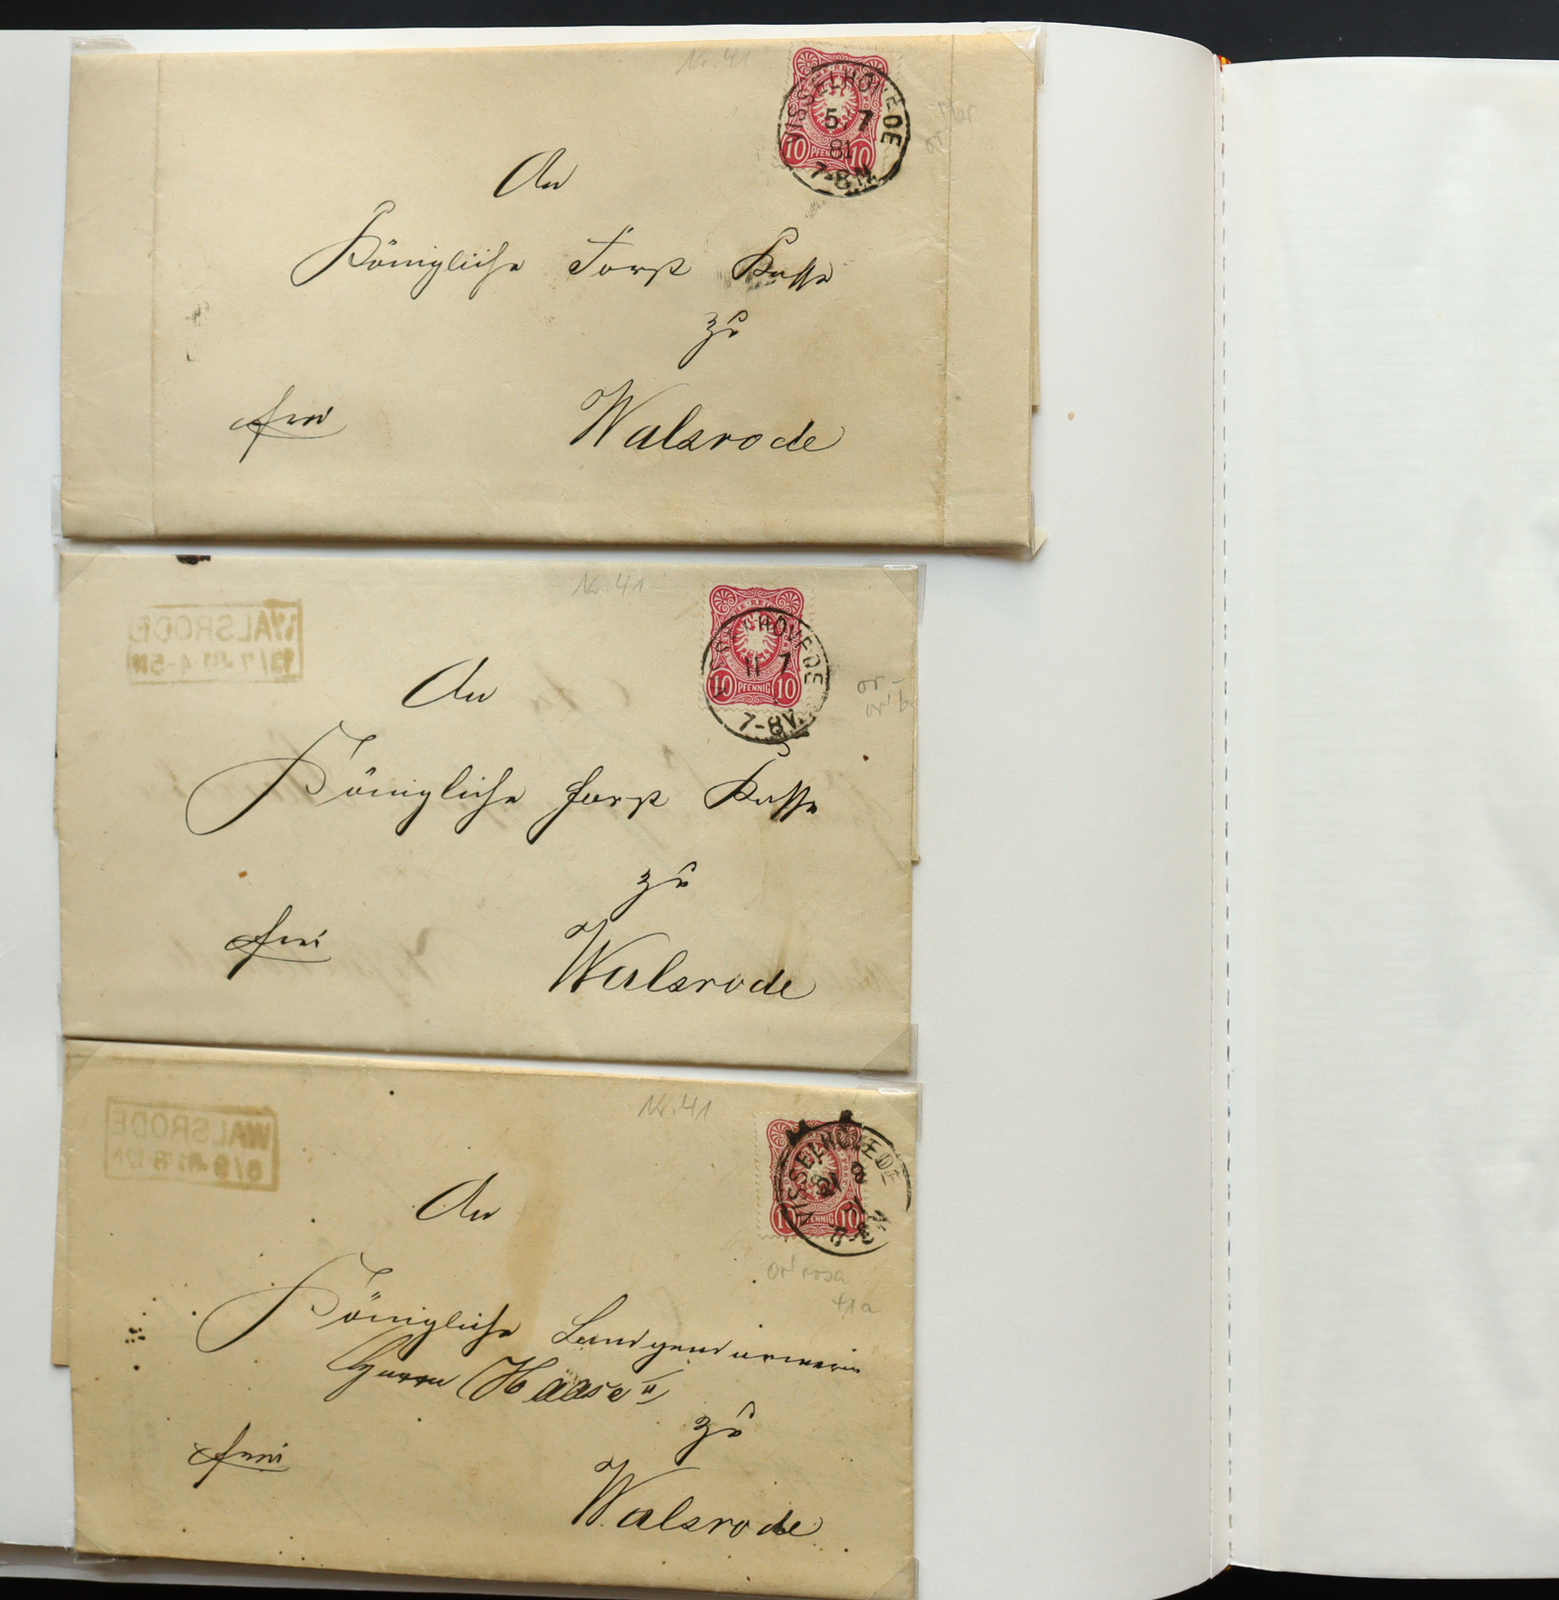 Nr. 41
VISSELHÖVEDE
5/7
81
7-8N.
10 PFENNIG 10
An
Königliche Forst Kasse
zu
frei
Walsrode
Nr. 41
WALSRODE
VISSELHÖVEDE
11 7
10 PFENNIG 10
7-8V.
or-
An
Königliche Forst Kasse
zu
frei
Walsrode
Nr. 41
WALSRODE
VISSELHÖVEDE
10 PFENNIG 10
or'rosa
41a
An
Königliche Landgendarmerie
Herrn Haase II
zu
frei
Walsrode